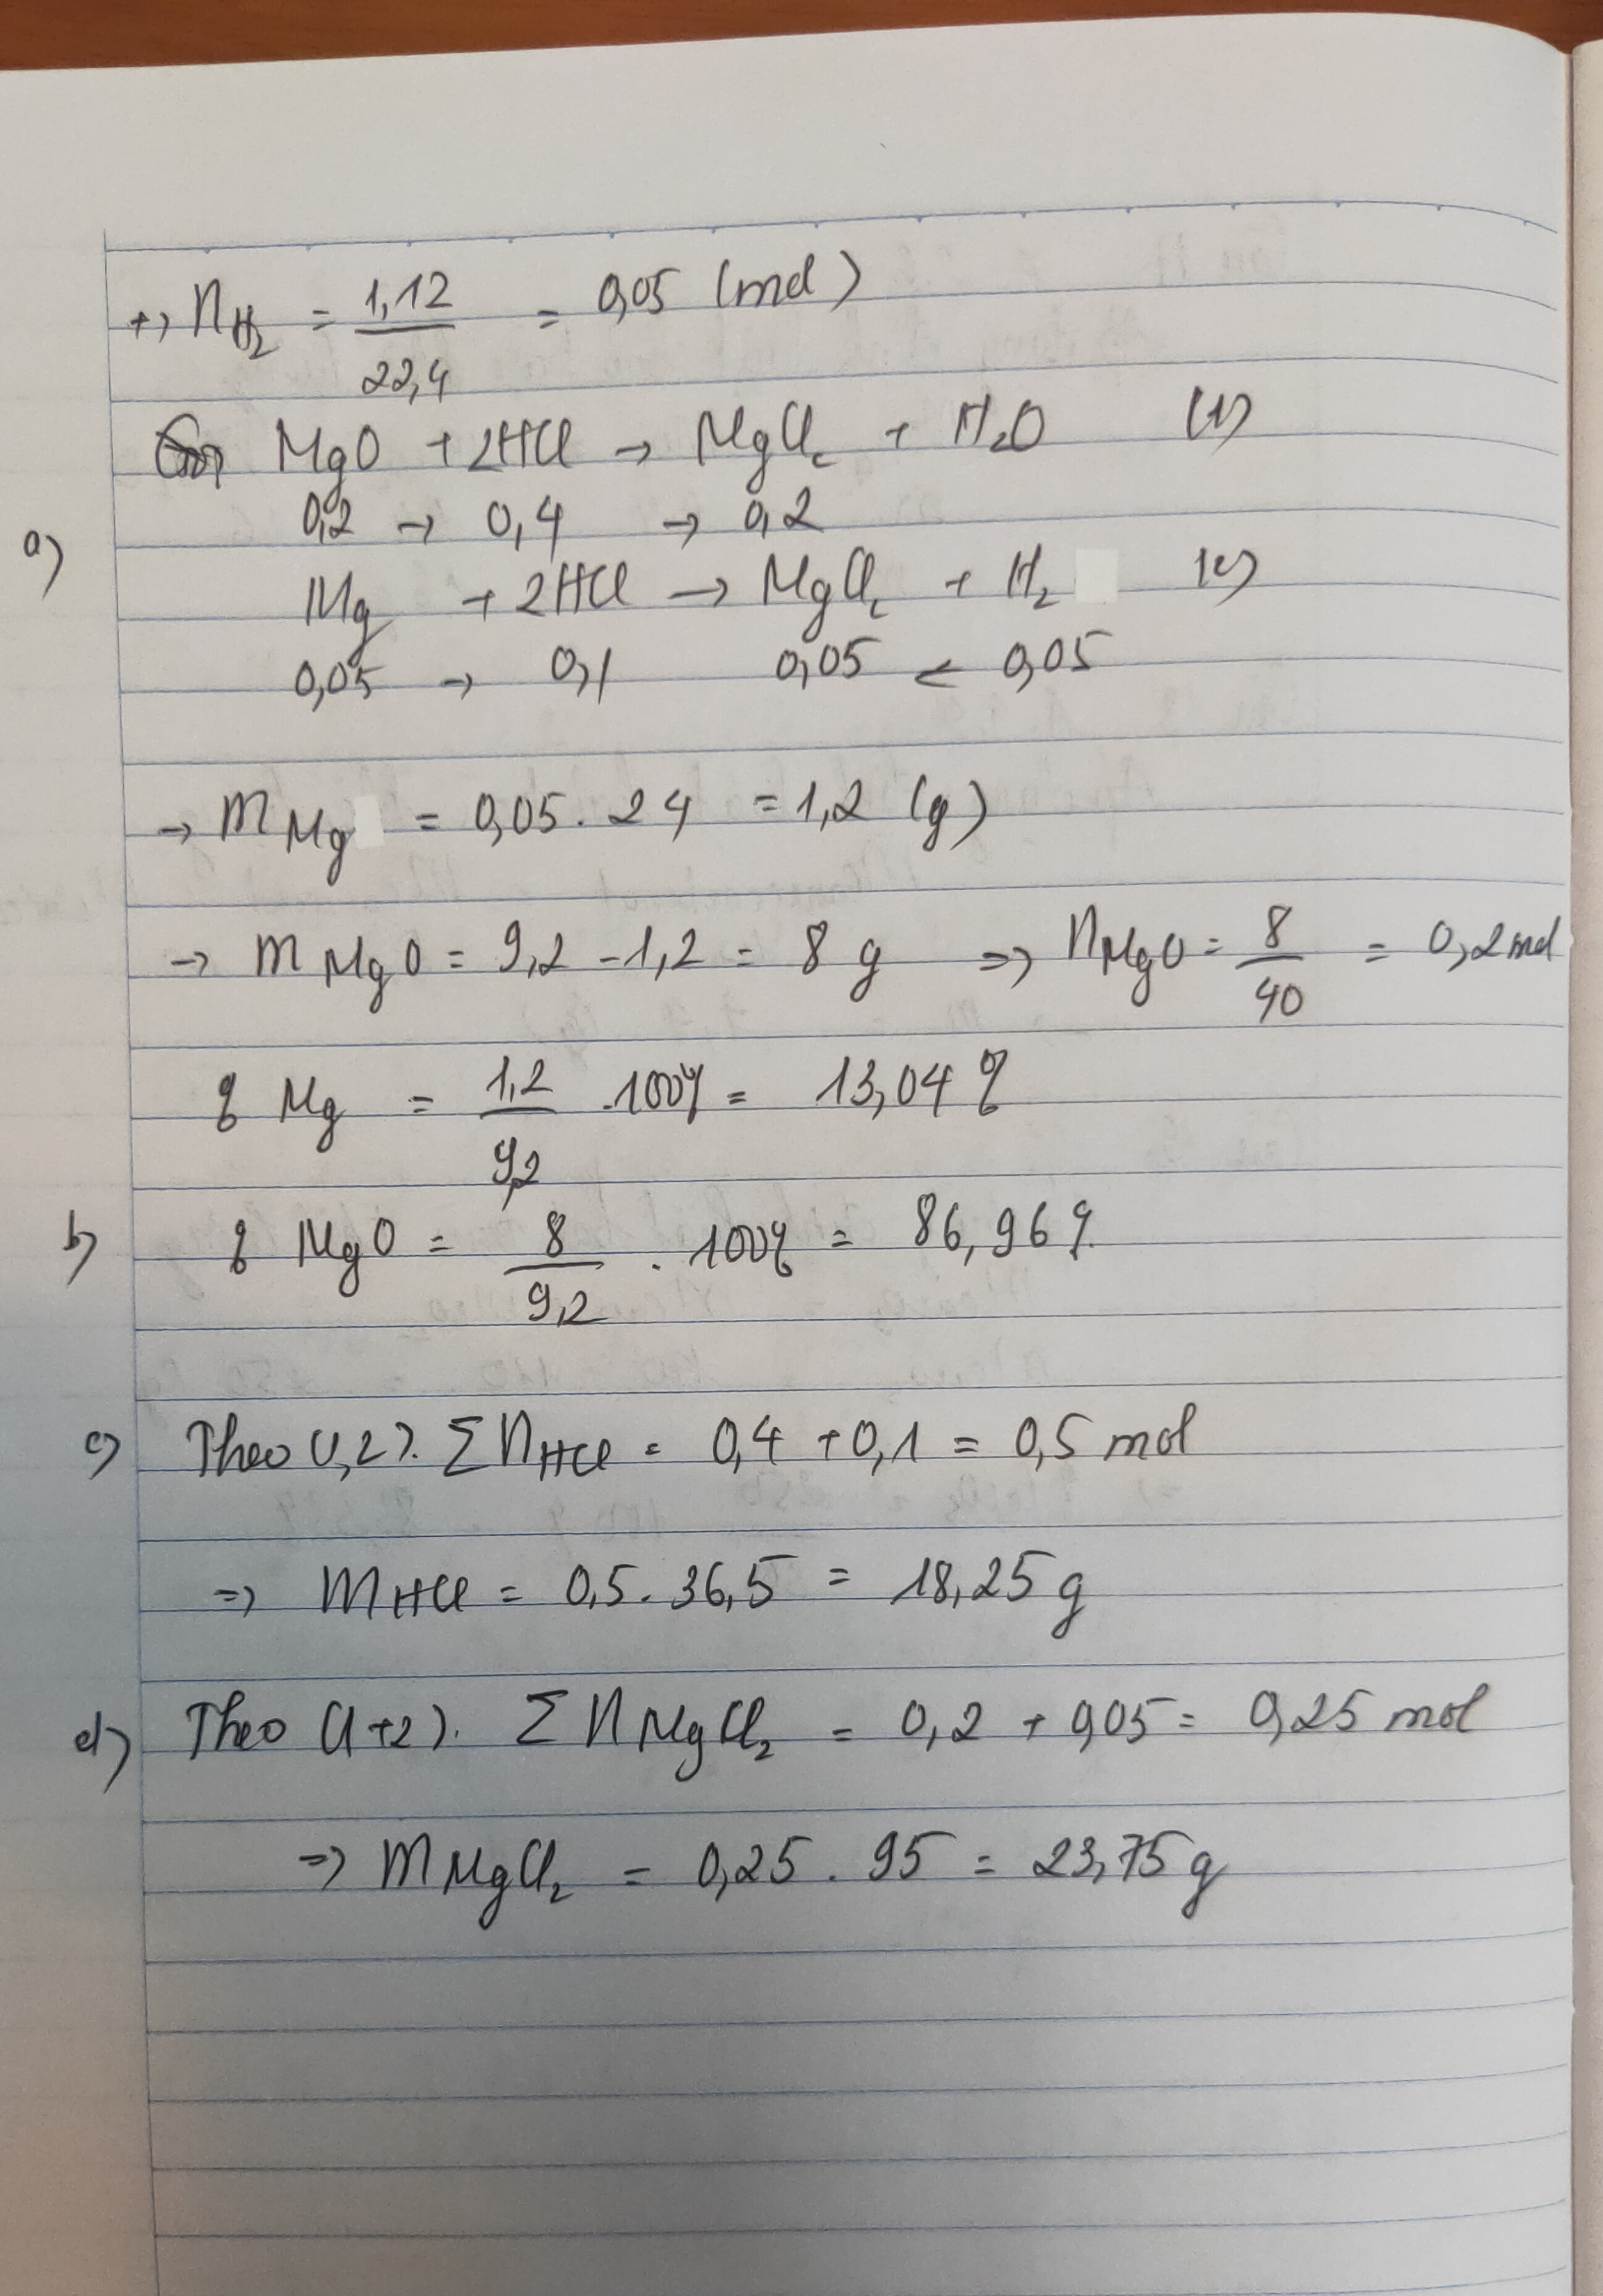 +) nH2 = 1,12 / 22,4 = 0,05 (mol)
MgO + 2HCl → MgCl2 + H2O (1)
0,2 → 0,4 → 0,2
a)
Mg + 2HCl → MgCl2 + H2 (2)
0,05 → 0,1 0,05 ← 0,05
→ mMg = 0,05 . 24 = 1,2 (g)
→ mMgO = 9,2 - 1,2 = 8 g => nMgO = 8 / 40 = 0,2 mol
% Mg = 1,2 / 9,2 . 100% = 13,04 %
b) % MgO = 8 / 9,2 . 100% = 86,96 %
c) Theo (1,2). Σ nHCl = 0,4 + 0,1 = 0,5 mol
=> mHCl = 0,5 . 36,5 = 18,25 g
d) Theo (1+2). Σ nMgCl2 = 0,2 + 0,05 = 0,25 mol
=> mMgCl2 = 0,25 . 95 = 23,75 g